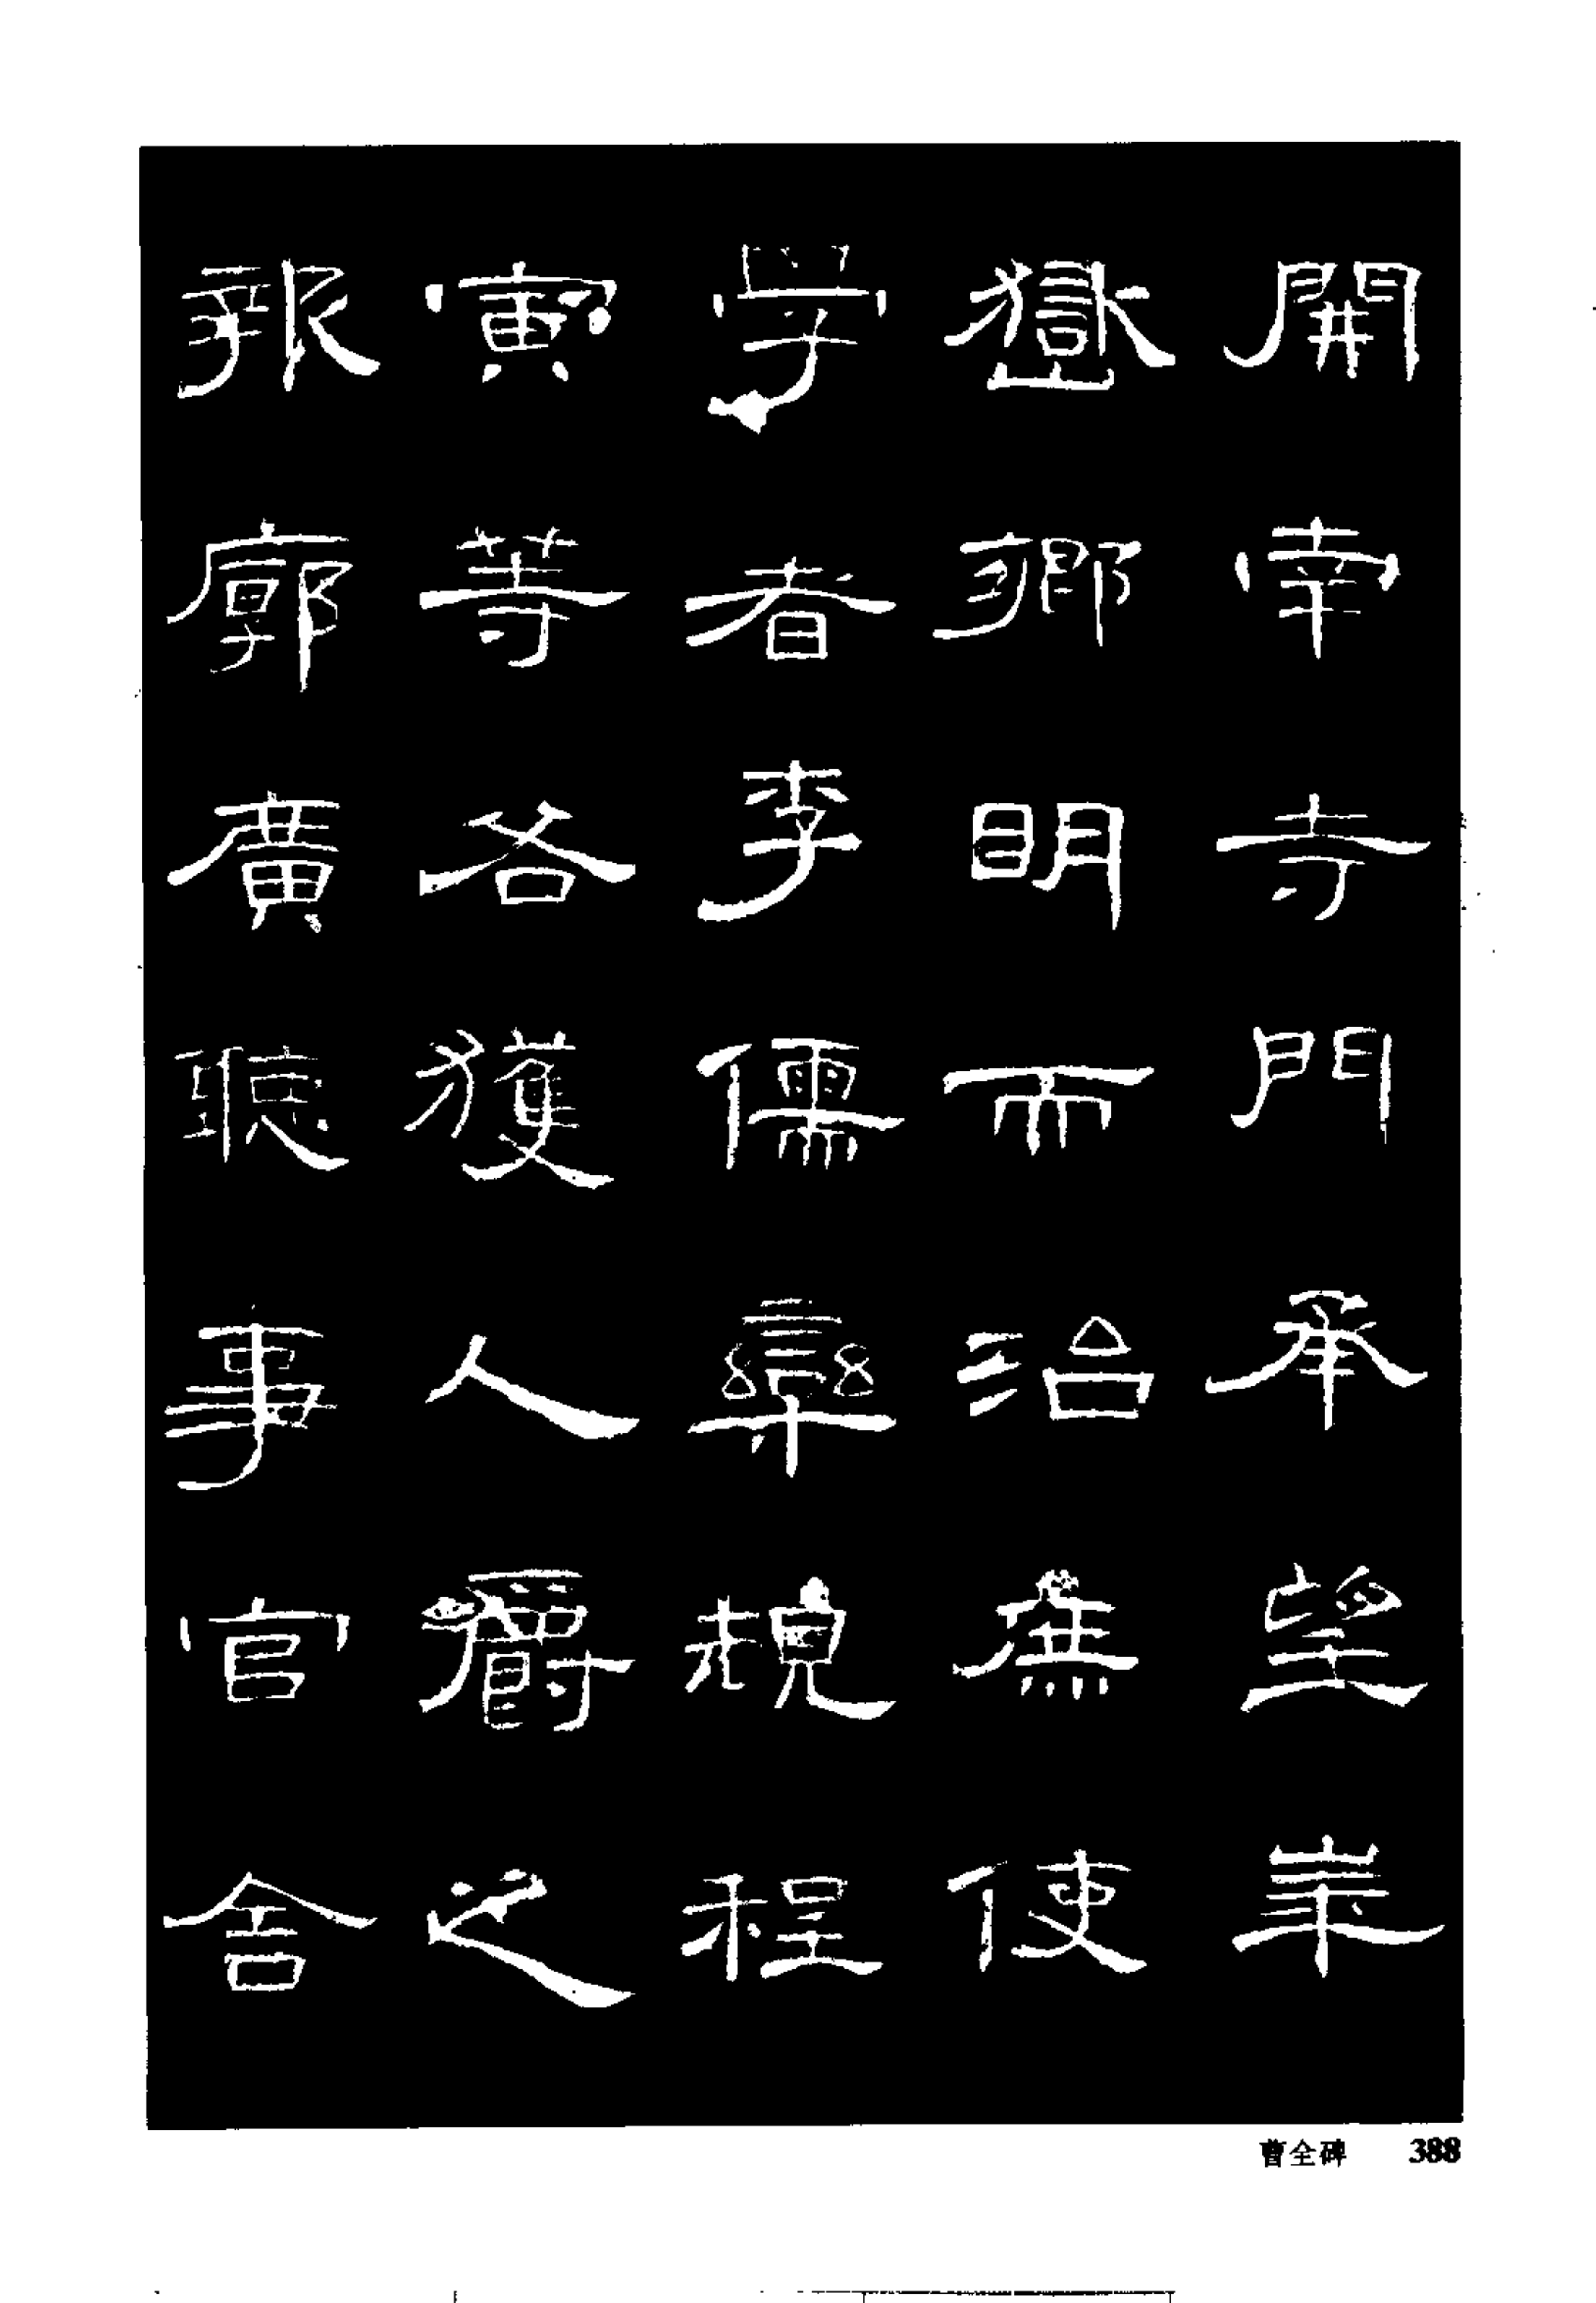 開南寺門承望華
嶽鄉明而治庶使
學者李儒欒規程
寅等各獲人爵之
報廓廣聽事官舍
曹全碑 388